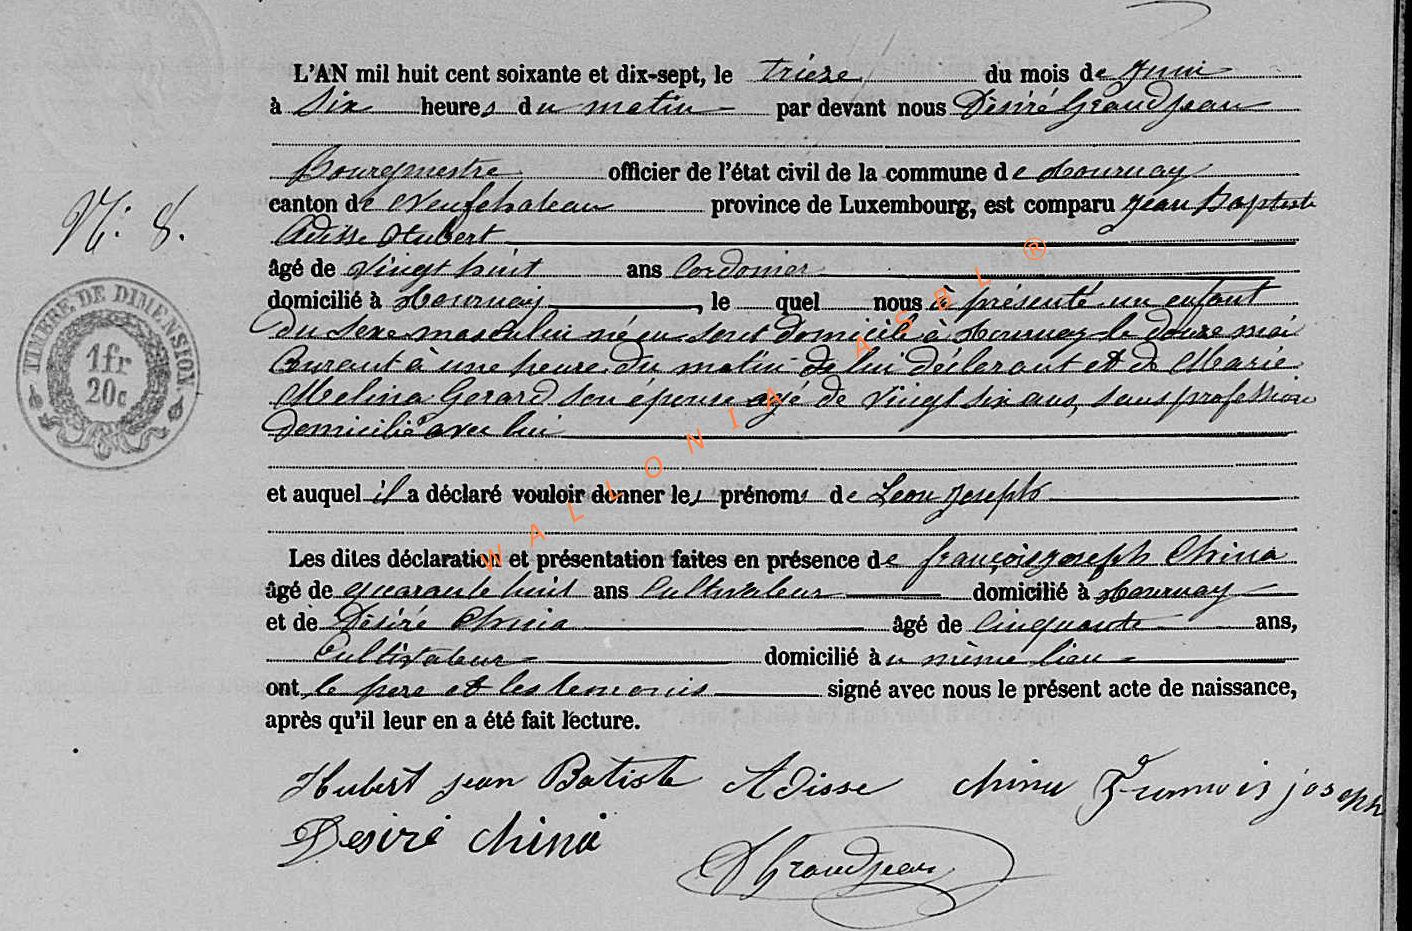 L'AN mil huit cent soixante et dix-sept, le treize du mois de Juin
à six heures du matin par devant nous Désiré Grandjean
Bourgmestre officier de l'état civil de la commune de Tournay
canton de Neufchateau province de Luxembourg, est comparu Jean Baptiste
N: 8.
Adisse Hubert
âgé de Vingt huit ans Cordonier
domicilié à Tournay, le quel nous à présenté un enfant
du sexe masculin né en sont domicile à Tournay le douze moi
Curant à une heure du matin de lui déclarant et de Marie
Melina Gerard son épouse agé de Vingt six ans, sans profession
domicilié avec lui
TIMBRE DE DIMENSION
1fr
20c
et auquel il a déclaré vouloir donner les prénoms de Léon Joseph
WALLONIA ASBL ®
Les dites déclaration et présentation faites en présence de françois joseph China
âgé de quarante huit ans Cultivateur domicilié à Tournay
et de Désiré China âgé de Cinquante ans,
Cultivateur domicilié au même lieu
ont le pere et les temoins signé avec nous le présent acte de naissance,
après qu'il leur en a été fait lecture.
Hubert jean Batiste Adisse china Francois joseph
Desiré china
D Grandjean